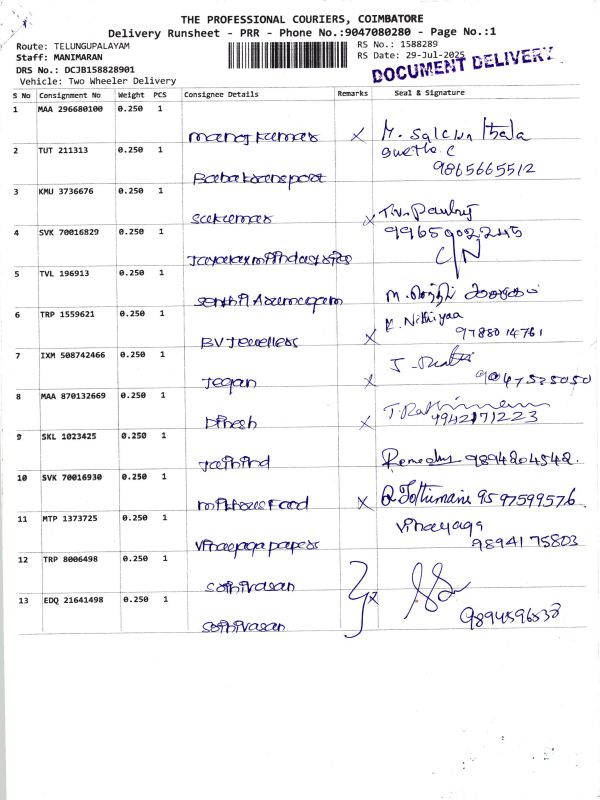 THE PROFESSIONAL COURIERS, COIMBATORE
Delivery Runsheet - PRR - Phone No.:9047080280 - Page No.:1
Route: TELUNGUPALAYAM
RS No.: 1588289
Staff: MANIMARAN
RS Date: 29-Jul-2025
DRS No.: DCJB158828901
DOCUMENT DELIVERY
Vehicle: Two Wheeler Delivery
S No Consignment No Weight PCS Consignee Details Remarks Seal & Signature
1 MAA 296680100 0.250 1
manojkumar x
2 TUT 211313 0.250 1
9865665512
Babatransport
3 KMU 3736676 0.250 1
Sukumar x
4 SVK 70016829 0.250 1
9965902245
C/N
5 TVL 196913 0.250 1
Senthil Arumugam
6 TRP 1559621 0.250 1
K. Nithiyaa
BV Jewellers x 9788014761
7 IXM 508742466 0.250 1
Jegan x
8 MAA 870132669 0.250 1
Dinesh x 9942171223
9 SKL 1023425 0.250 1
Jaihind 9894204542.
10 SVK 70016930 0.250 1
x 9597599576
11 MTP 1373725 0.250 1
Vinayaga
Vinayaga papers 9894175803
12 TRP 8006498 0.250 1
Srinivasan
x
13 EDQ 21641498 0.250 1
9894596538
Srinivasan